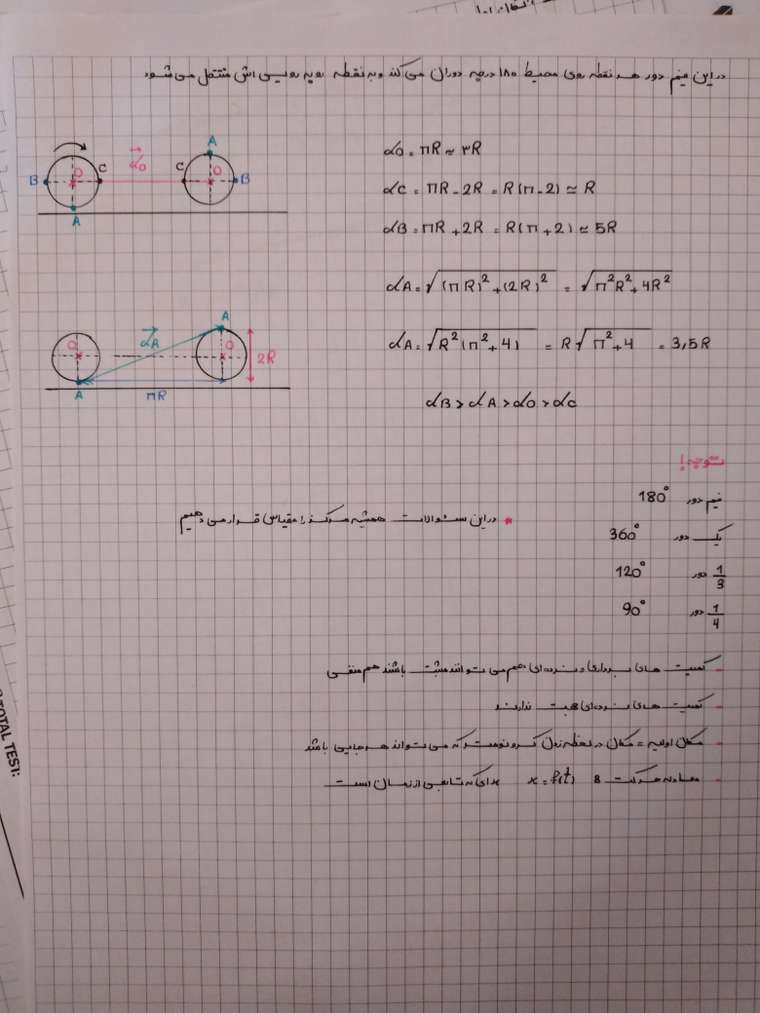 در این نیم دور هر نقطه روی محیط ۱۸۰ درجه دوران می کند و به نقطه رو به رویی اش منتقل می شود
A
B O C d⃗O C O B
A
dO = πR ≈ ۳R
dC = πR - 2R = R(π-2) ≃ R
dB = πR + 2R = R(π+2) ≃ 5R
dA = √(πR)²+(2R)² = √π²R²+4R²
A
O d⃗A O 2R
A πR
dA = √R²(π²+4) = R√π²+4 = 3,5R
dB > dA > dO > dC
توجه!
نیم دور 180°
* در این سئوالات همیشه مرکز را مقیاس قرار می دهیم
یک دور 360°
1/3 دور 120°
1/4 دور 90°
- کمیت های برداری و نرده ای هم می توانند مثبت باشند هم منفی
- کمیت های نرده ای جهت ندارند
- مکان اولیه = مکان در لحظه زمان کرونومتر که می تواند هر جایی باشد
- معادله حرکت 8 x = f(t) x ای که تابعی از زمان است
TOTAL TEST: